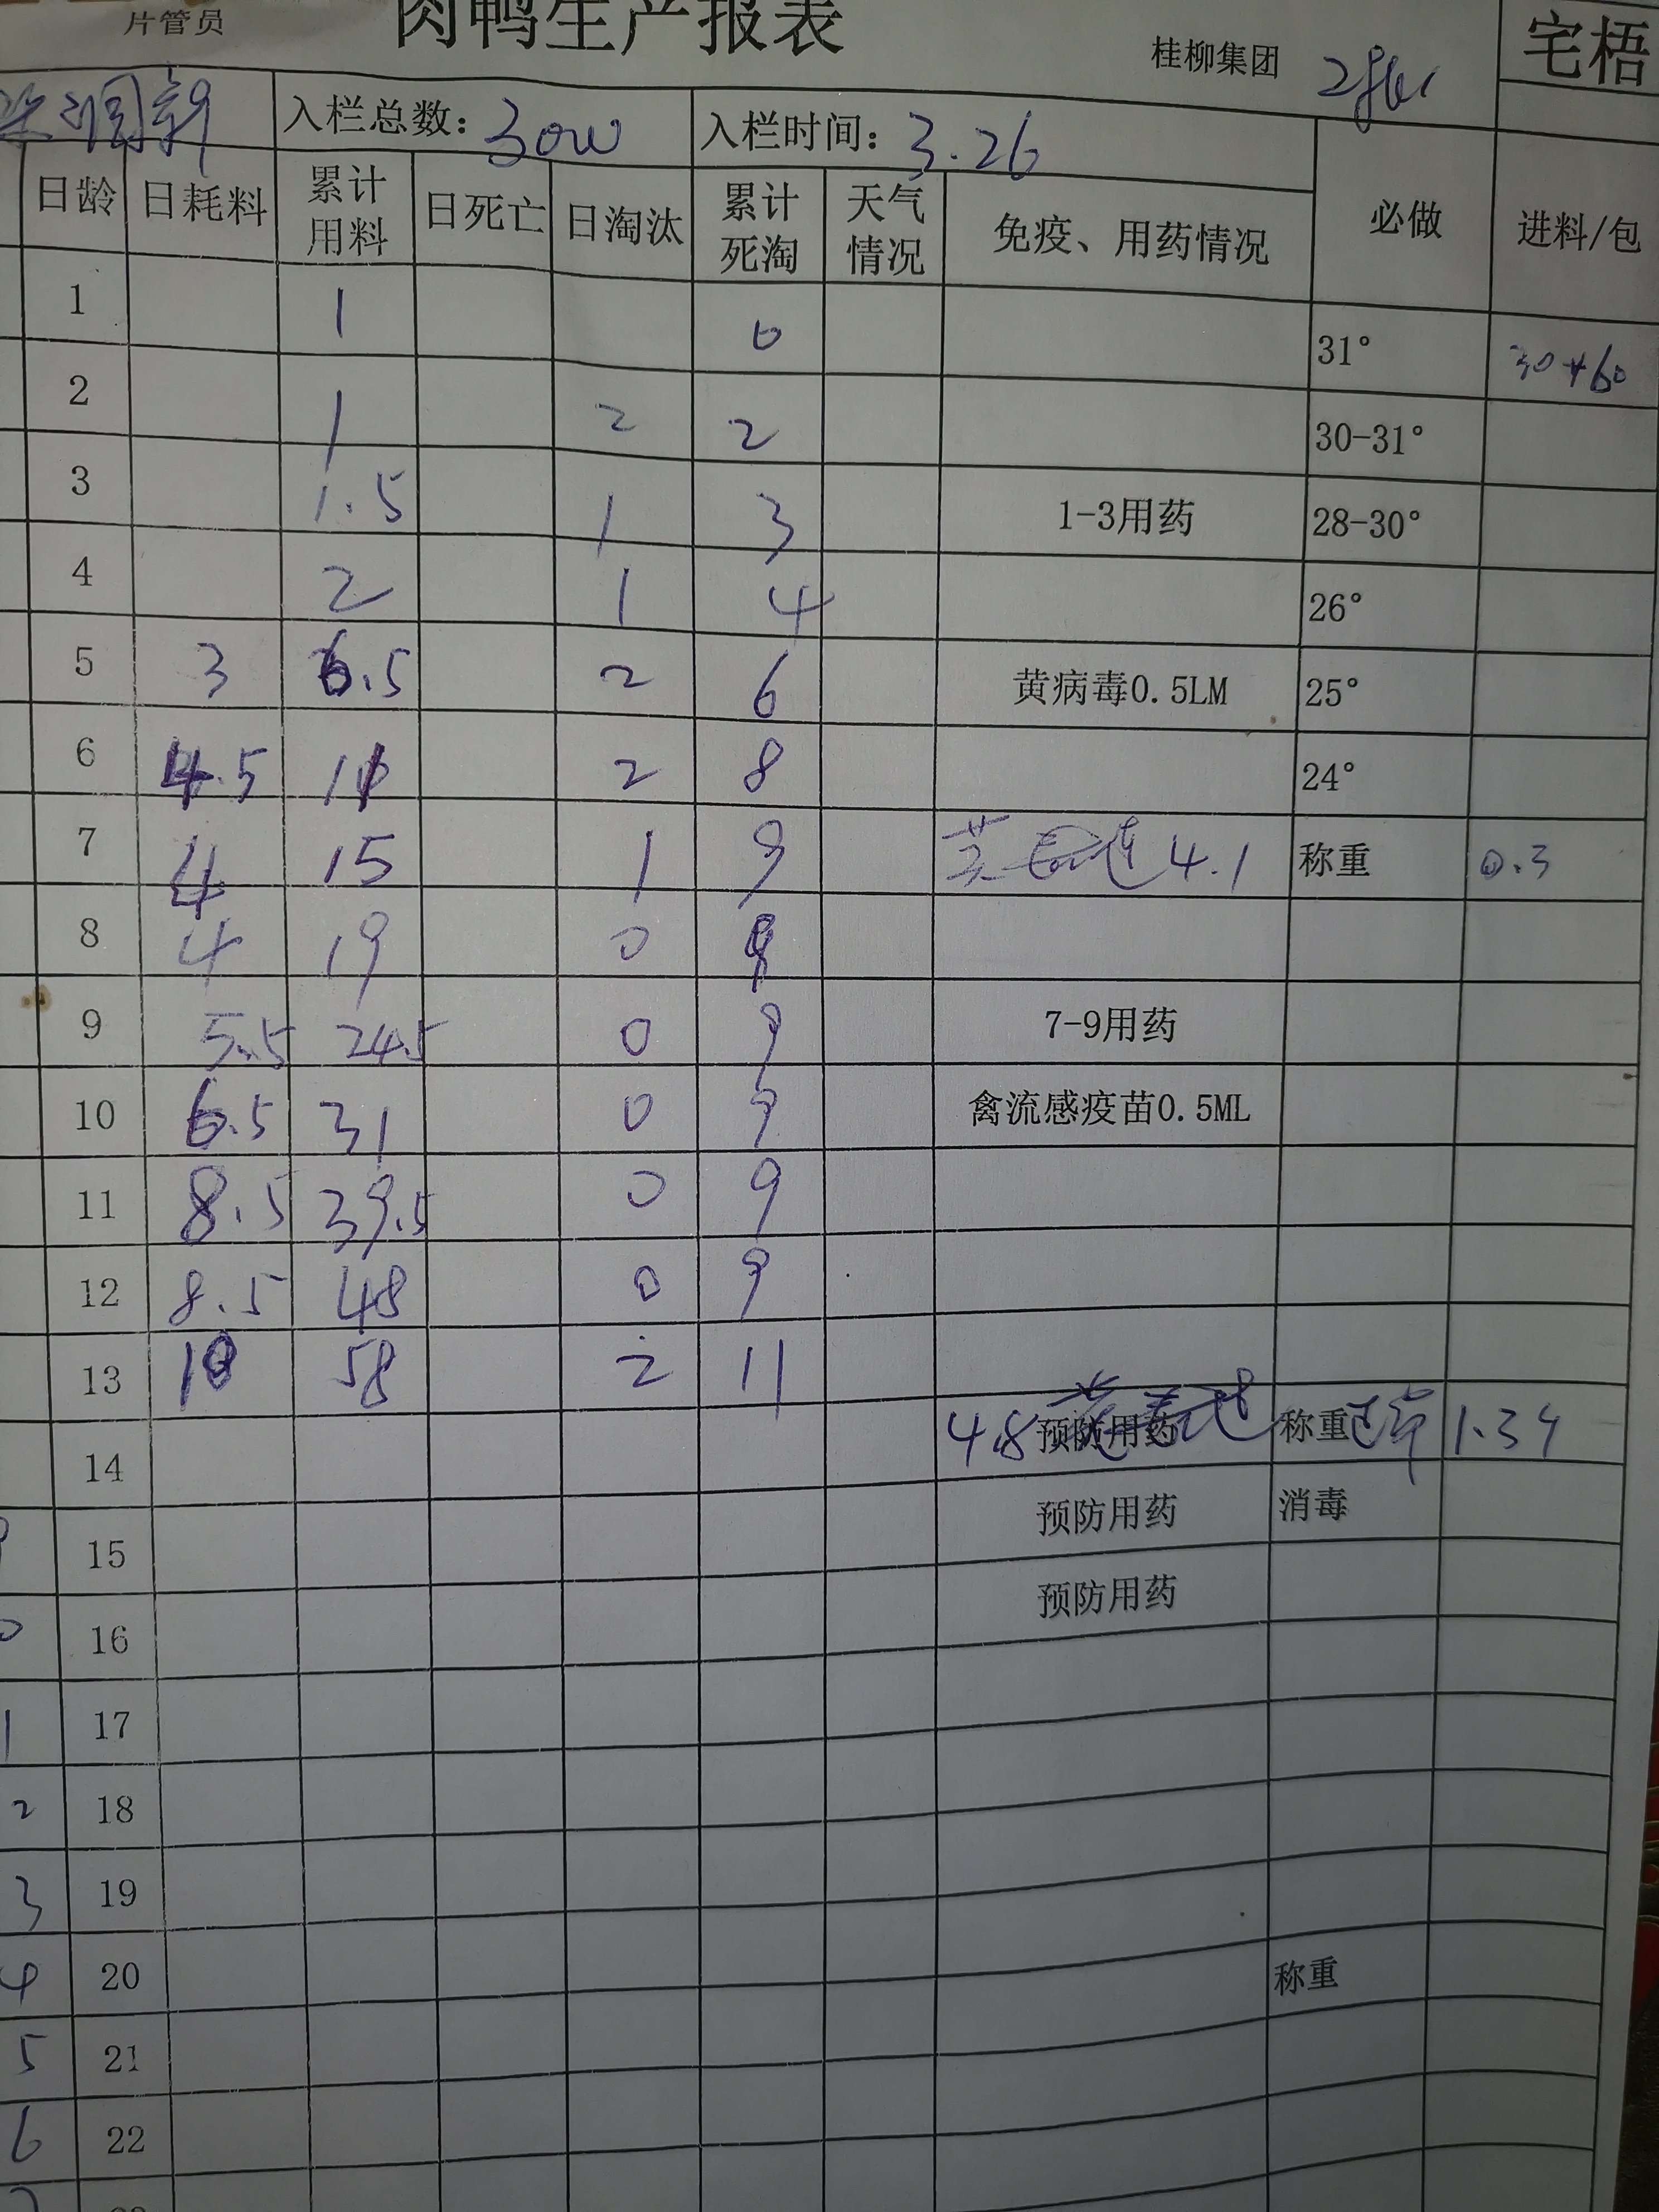 片管员 肉鸭生产报表 桂柳集团 宅梧
入栏总数: 入栏时间: 3.26
日龄 日耗料 累计用料 日死亡 日淘汰 累计死淘 天气情况 免疫、用药情况 必做 进料/包
1 1 0 31° 30+60
2 1 2 2 30-31°
3 1.5 1 3 1-3用药 28-30°
4 2 1 4 26°
5 3 6.5 2 6 黄病毒0.5LM 25°
6 4.5 11 2 8 24°
7 4 15 1 9 4.1 称重 0.3
8 4 19 0 9
9 5.5 24.5 0 9 7-9用药
10 6.5 31 0 9 禽流感疫苗0.5ML
11 8.5 39.5 0 9
12 8.5 48 0 9
13 10 58 2 11
14 4.8 预防用药 称重
15 预防用药 消毒
16 预防用药
17
18
19
20 称重
21
22